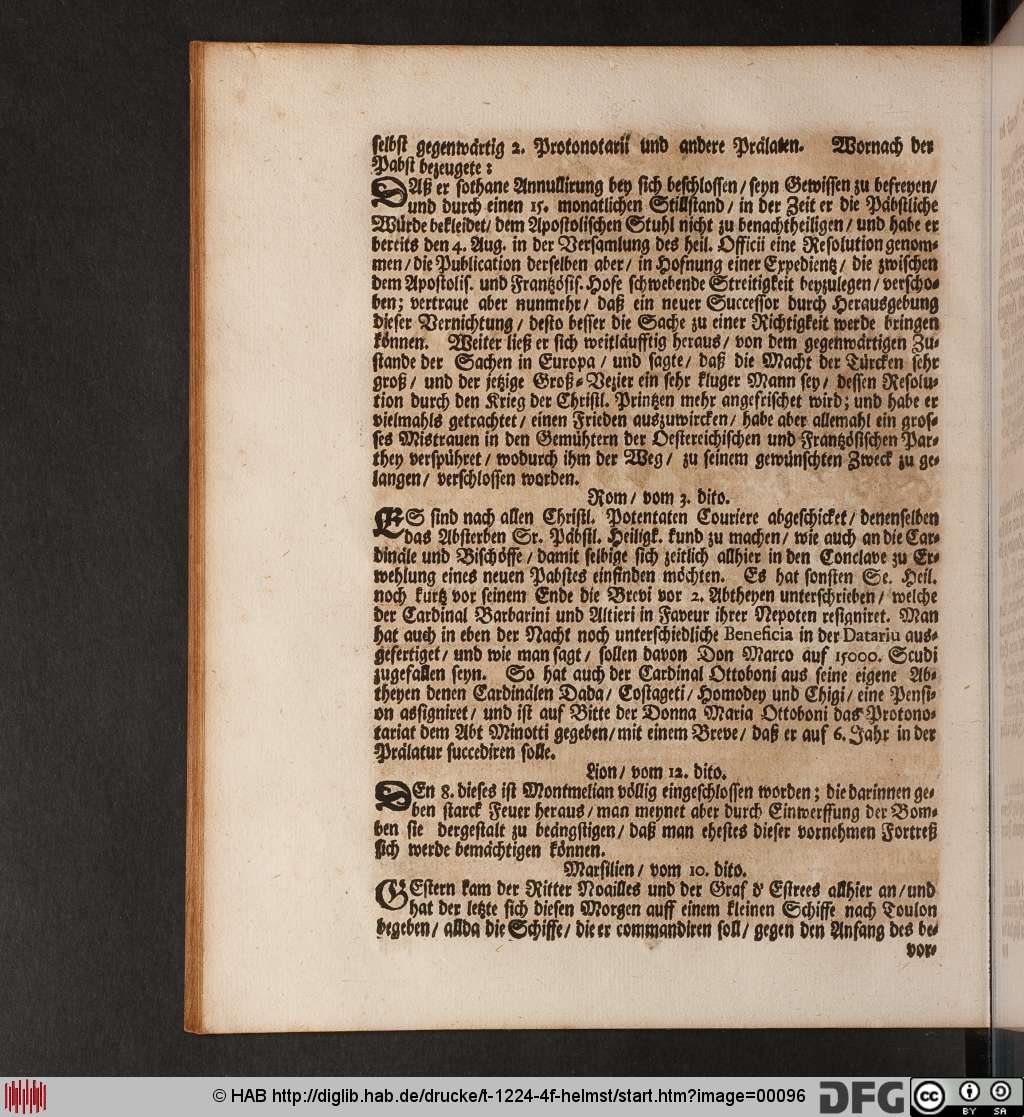 selbst gegenwärtig 2. Protonotarii und andere Prälaten. Wornach der
Pabst bezeugete:
DAß er sothane Annullirung bey sich beschlossen / seyn Gewissen zu befreyen /
und durch einen 15. monatlichen Stillstand / in der Zeit er die Päbstliche
Würde bekleidet / dem Apostolischen Stuhl nicht zu benachtheiligen / und habe er
bereits den 4. Aug. in der Versamlung des heil. Officii eine Resolution genom-
men / die Publication derselben aber / in Hofnung einer Expedientz / die zwischen
dem Apostolis. und Frantzösis. Hofe schwebende Streitigkeit beyzulegen / verscho-
ben; vertraue aber nunmehr / daß ein neuer Successor durch Herausgebung
dieser Vernichtung / desto besser die Sache zu einer Richtigkeit werde bringen
können. Weiter ließ er sich weitläufftig heraus / von dem gegenwärtigen Zu-
stande der Sachen in Europa / und sagte / daß die Macht der Türcken sehr
groß / und der jetzige Groß-Vezier ein sehr kluger Mann sey / dessen Resolu-
tion durch den Krieg der Christl. Printzen mehr angefrischet wird; und habe er
vielmahls getrachtet / einen Frieden auszuwircken / habe aber allemahl ein gros-
ses Mistrauen in den Gemühtern der Oestereichischen und Frantzösischen Par-
they verspühret / wodurch ihm der Weg / zu seinem gewünschten Zweck zu ge-
langen / verschlossen worden.
Rom / vom 3. dito.
ES sind nach allen Christl. Potentaten Couriere abgeschicket / denenselben
das Absterben Sr. Päbstl. Heiligk. kund zu machen / wie auch an die Car-
dinäle und Bischöffe / damit selbige sich zeitlich allhier in den Conclave zu Er-
wehlung eines neuen Pabstes einfinden möchten. Es hat sonsten Se. Heil.
noch kurtz vor seinem Ende die Brevi vor 2. Abtheyen unterschrieben / welche
der Cardinal Barbarini und Altieri in Faveur ihrer Nepoten resigniret. Man
hat auch in eben der Nacht noch unterschiedliche Beneficia in der Datariu aus-
gefertiget / und wie man sagt / sollen davon Don Marco auf 15000. Scudi
zugefallen seyn. So hat auch der Cardinal Ottoboni aus seine eigene Ab-
theyen denen Cardinälen Dada / Costageti / Homodey und Chigi / eine Pensi-
on assigniret / und ist auf Bitte der Donna Maria Ottoboni das Protono-
tariat dem Abt Minotti gegeben / mit einem Breve / daß er auf 6. Jahr in der
Prälatur succediren solle.
Lion / vom 12. dito.
DEn 8. dieses ist Montmelian völlig eingeschlossen worden; die darinnen ge-
ben starck Feuer heraus / man meynet aber durch Einwerffung der Bom-
ben sie dergestalt zu beängstigen / daß man ehestes dieser vornehmen Fortreß
sich werde bemächtigen können.
Marsilien / vom 10. dito.
GEstern kam der Ritter Noailles und der Graf d' Estrees allhier an / und
hat der letzte sich diesen Morgen auff einem kleinen Schiffe nach Toulon
begeben / allda die Schiffe / die er commandiren soll / gegen den Anfang des be-
vor-
© HAB http://diglib.hab.de/drucke/t-1224-4f-helmst/start.htm?image=00096
DFG
cc
BY SA